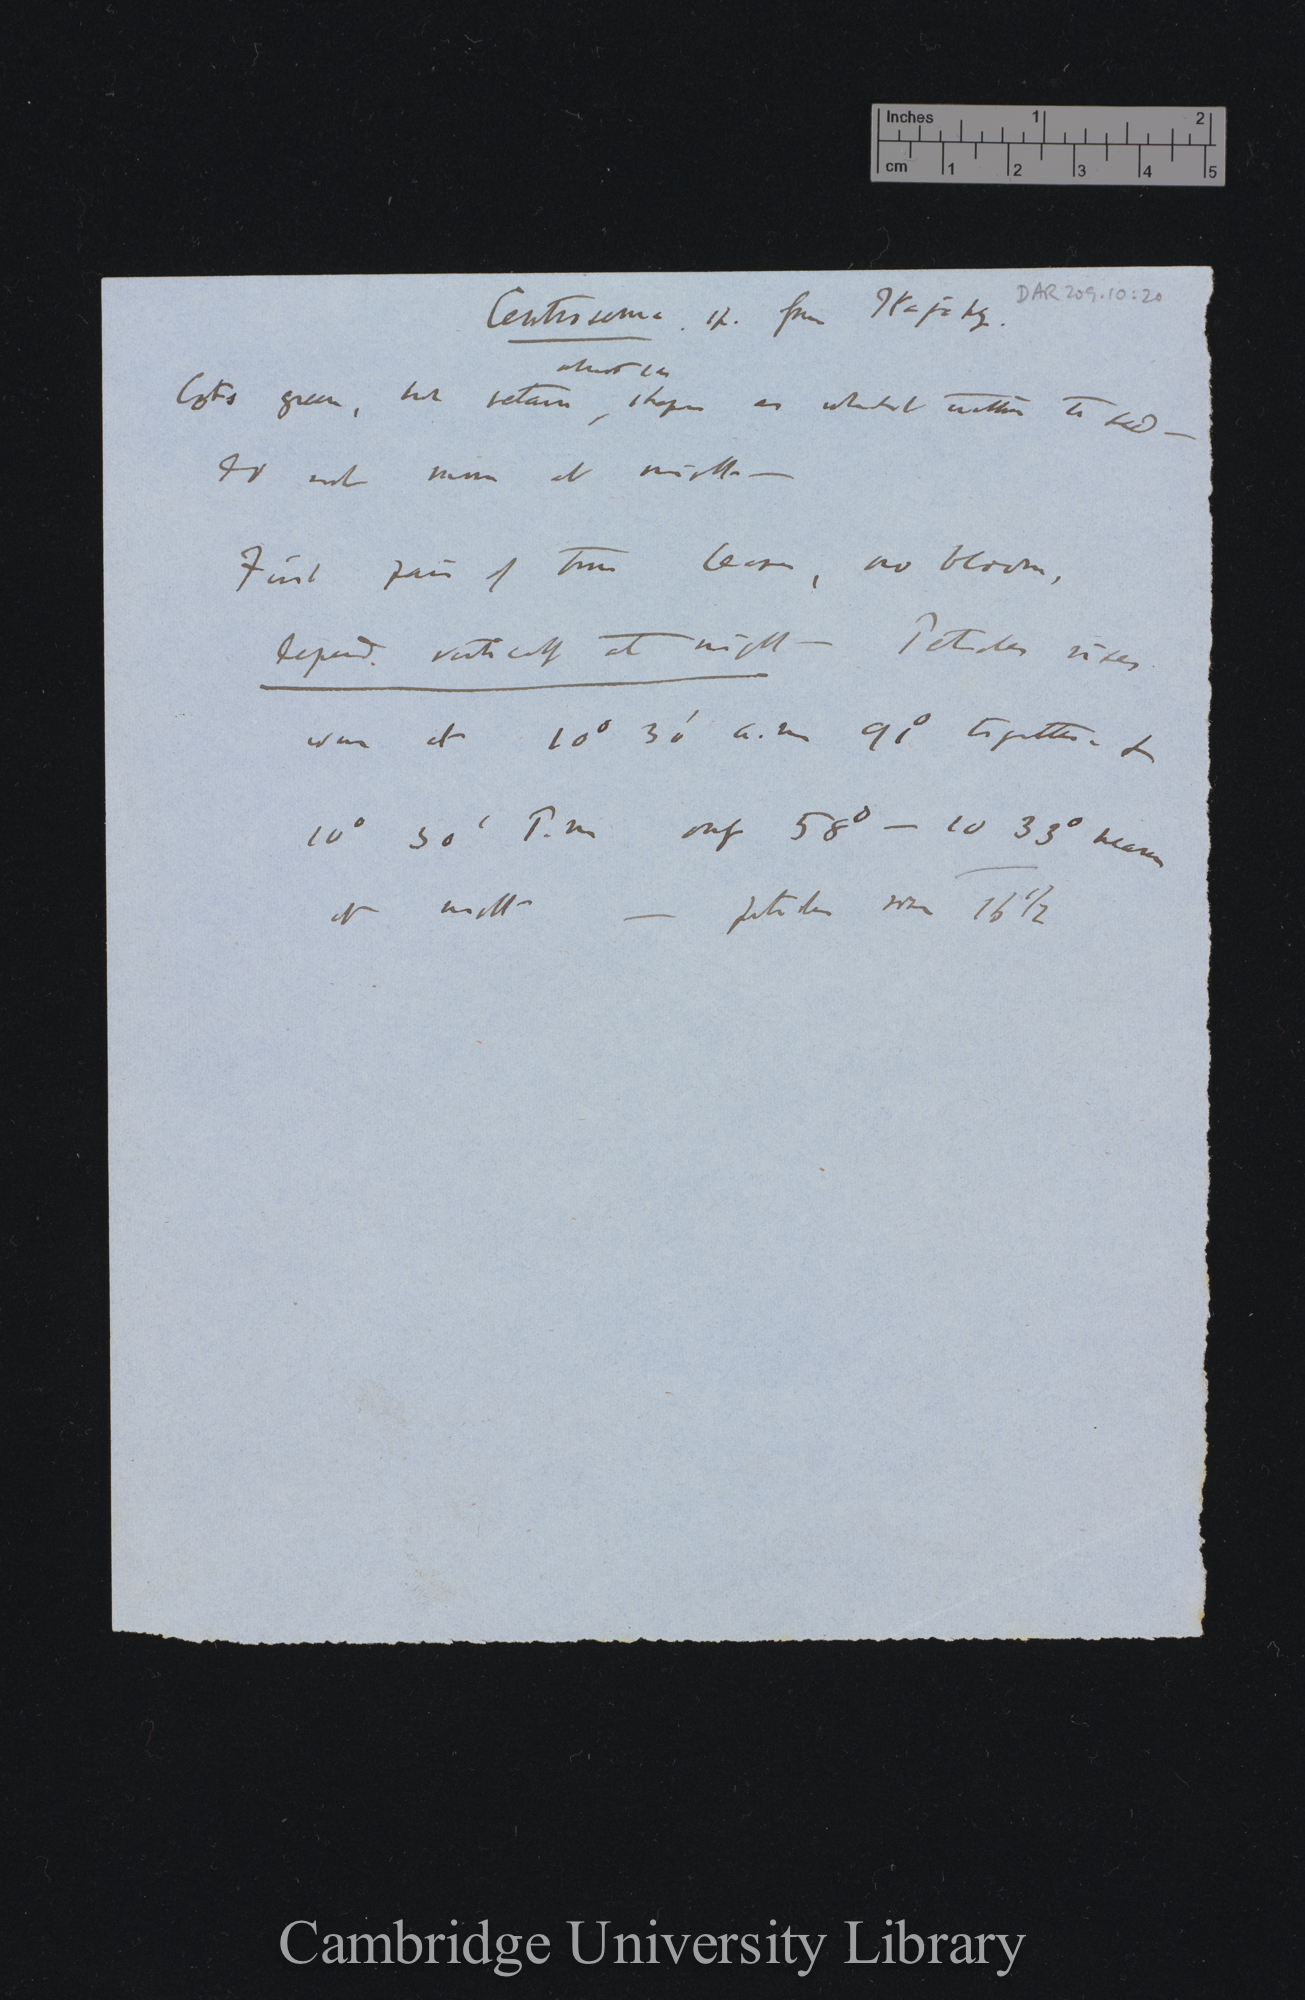 Inches 1 2
cm 1 2 3 4 5
DAR 209.10:20
Centrosema. sp. from
almost in
Cots green, but retain, shape as whilst within the seed —
do not move at night —
First pair of true leaves, no bloom,
depend. vertically at night — Petioles rises.
were at 10° 30' a.m 91° together &
10° 30' P.m only 58° — so 33° nearer
at night — petioles rose 16 1/2
Cambridge University Library